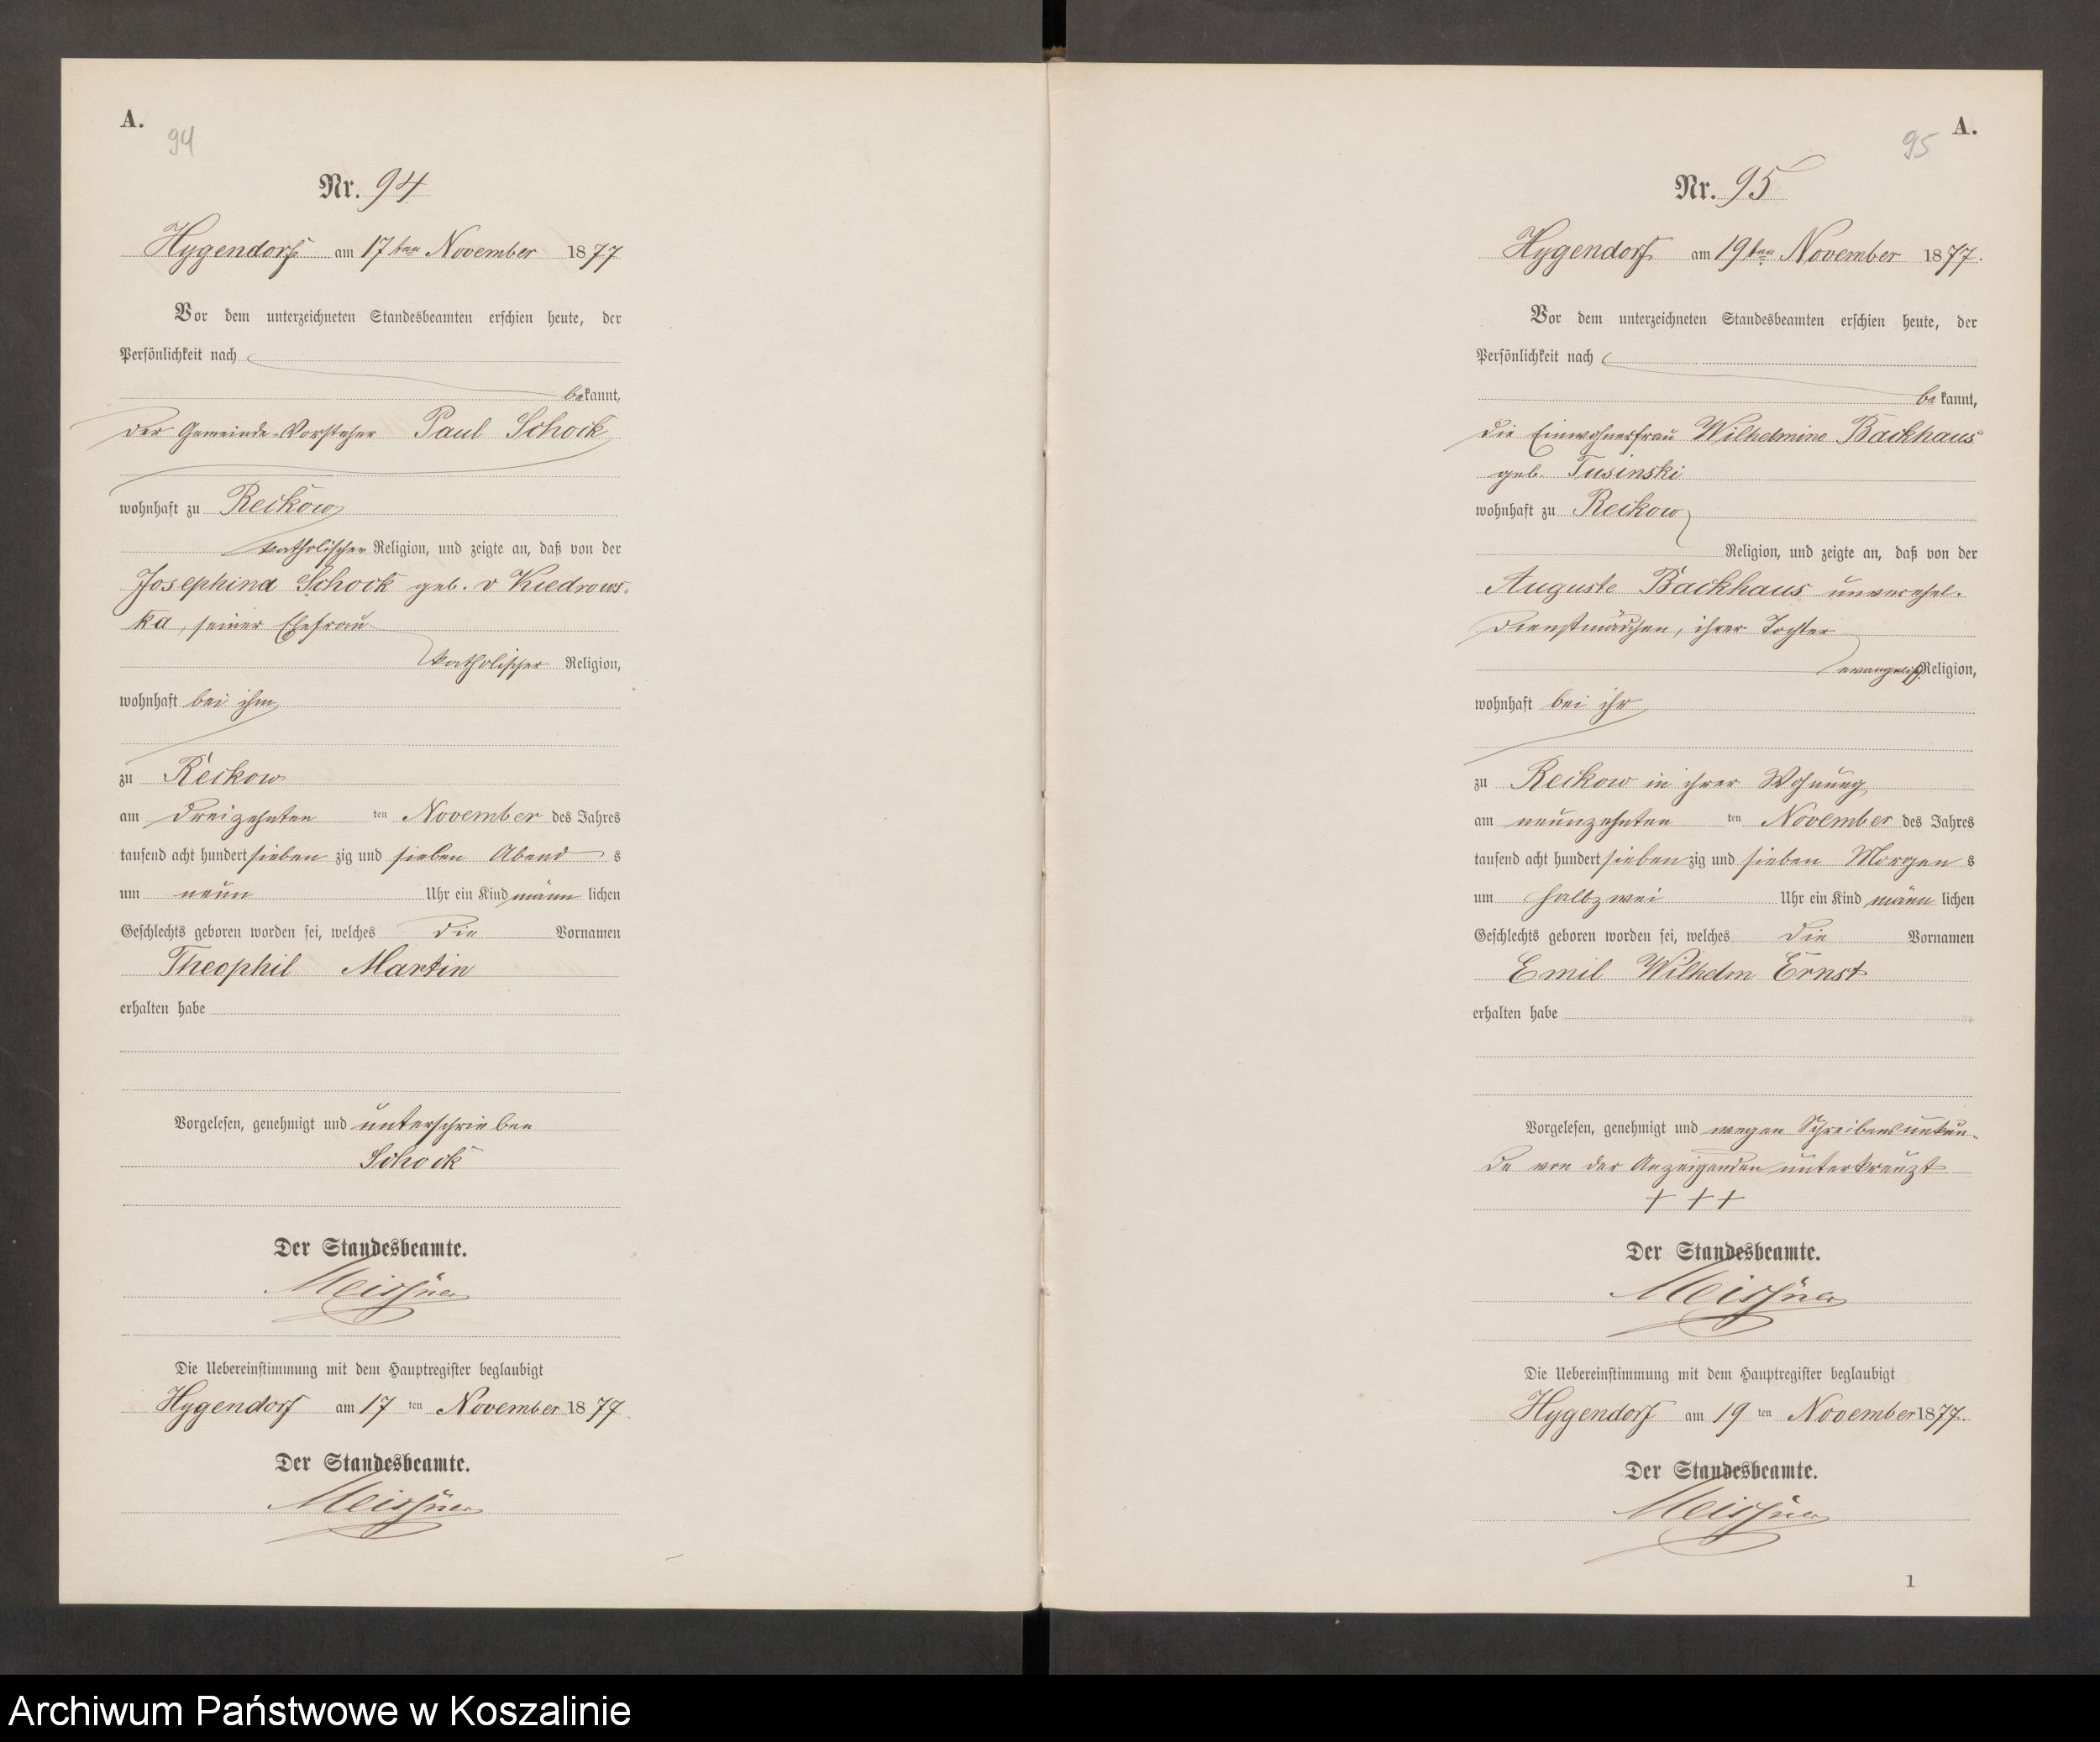 A.
94
Nr. 94
Hygendorf am 17ten November 1877
Vor dem unterzeichneten Standesbeamten erschien heute, der
Persönlichkeit nach
bekannt,
der Gemeinde-Vorsteher Paul Schock
wohnhaft zu Reckow
katholischer Religion, und zeigte an, daß von der
Josephina Schock geb. v Kiedrows-
ka, seiner Ehefrau
katholischer Religion,
wohnhaft bei ihm
zu Reckow
am dreizehnten ten November des Jahres
tausend acht hundert sieben zig und sieben Abend s
um neun Uhr ein Kind männ lichen
Geschlechts geboren worden sei, welches die Vornamen
Theophil Martin
erhalten habe
Vorgelesen, genehmigt und unterschrieben
Schock
Der Standesbeamte.
Meissner
Die Uebereinstimmung mit dem Hauptregister beglaubigt
Hygendorf am 17 ten November 1877.
Der Standesbeamte.
Meissner
A.
95
Nr. 95
Hygendorf am 19ten November 1877.
Vor dem unterzeichneten Standesbeamten erschien heute, der
Persönlichkeit nach
bekannt,
die Einwohnerfrau Wilhelmine Backhaus
geb. Tusinski
wohnhaft zu Reckow
Religion, und zeigte an, daß von der
Auguste Backhaus unverehel.
Dienstmädchen, ihrer Tochter
evangelisch Religion,
wohnhaft bei ihr
zu Reckow in ihrer Wohnung
am neunzehnten ten November des Jahres
tausend acht hundert sieben zig und sieben Morgen s
um halb zwei Uhr ein Kind männ lichen
Geschlechts geboren worden sei, welches die Vornamen
Emil Wilhelm Ernst
erhalten habe
Vorgelesen, genehmigt und wegen Schreibensunkun-
de von der Anzeigenden unterkreuzt
+ + +
Der Standesbeamte.
Meissner
Die Uebereinstimmung mit dem Hauptregister beglaubigt
Hygendorf am 19 ten November 1877.
Der Standesbeamte.
Meissner
1
Archiwum Państwowe w Koszalinie